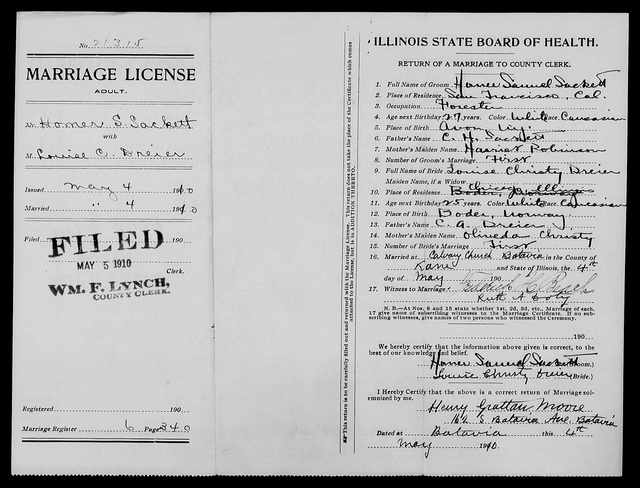 No. 21315
MARRIAGE LICENSE
ADULT.
Mr. Homer S. Sackett
with
M. Louise C. Dreier
Issued May 4 1910
Married " 4 1910
Filed 190
FILED
MAY 5 1910
Clerk.
WM. F. LYNCH,
COUNTY CLERK.
Registered 190
Marriage Register 6 Page 340
This return is to be carefully filled out and returned with the Marriage License. This return does not take the place of the Certificate which comes
attached to the License, but is in ADDITION THERETO.
ILLINOIS STATE BOARD OF HEALTH.
RETURN OF A MARRIAGE TO COUNTY CLERK.
1. Full Name of Groom Homer Samuel Sackett
2. Place of Residence San Francisco, Cal.
3. Occupation Forester
4. Age next Birthday 27 years. Color White Race Caucasian
5. Place of Birth Avon
6. Father's Name C. H. Sackett
7. Mother's Maiden Name Harriet Robinson
8. Number of Groom's Marriage First
9. Full Name of Bride Louise Christy Dreier
Maiden Name, if a Widow
10. Place of Residence Chicago Ills
11. Age next Birthday 25 years Color White Race Caucasian
12. Place of Birth Bodei, Norway
13. Father's Name C. A. Dreier
14. Mother's Maiden Name Olineda Christy
15. Number of Bride's Marriage First
16. Married at Calvary Church Batavia in the County of
Kane and State of Illinois, the 4
day of May 190
17. Witness to Marriage
Ruth A
N. B.—At Nos. 8 and 15 state whether 1st, 2d, 3d, etc., Marriage of each.
17 give name of subscribing witnesses to the Marriage Certificate. If no sub-
scribing witnesses, give names of two persons who witnessed the Ceremony.
190
We hereby certify that the information above given is correct, to the
best of our knowledge and belief.
Homer Samuel Sackett (Groom.)
Louise Christy Dreier (Bride.)
I Hereby Certify that the above is a correct return of Marriage sol-
emnized by me.
Henry Grattan Moore
S Batavia Ave, Batavia
Dated at Batavia this 4th
May 1910.